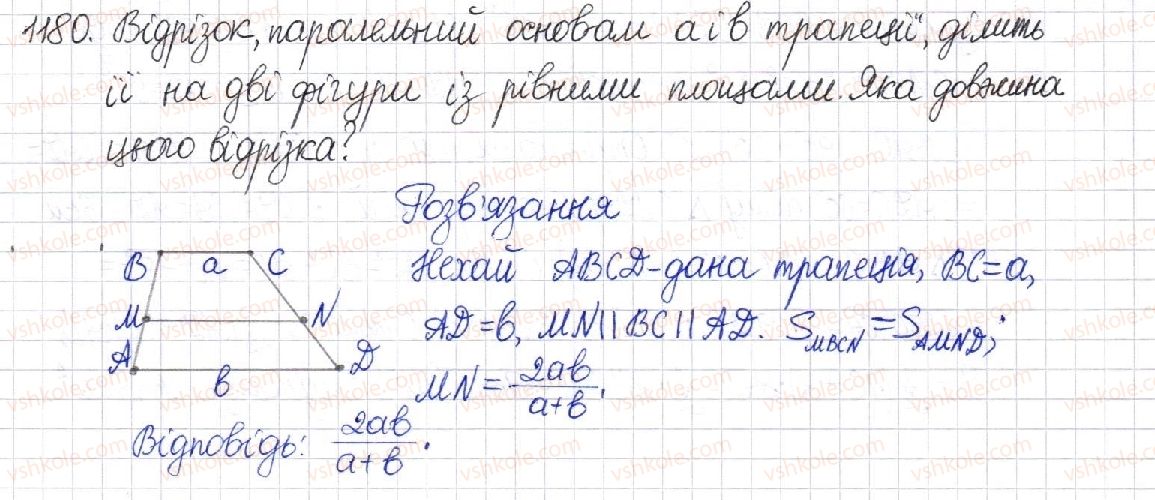 1180. Відрізок, паралельний основам a і b трапеції, ділить
її на дві фігури із рівними площами. Яка довжина
цього відрізка?
Розв'язання
B a C
M N
A D
b
Нехай ABCD-дана трапеція, BC=a,
AD=b, MN||BC||AD. S_MBCN=S_AMND;
MN=2ab/(a+b).
Відповідь: 2ab/(a+b).
vshkole.com